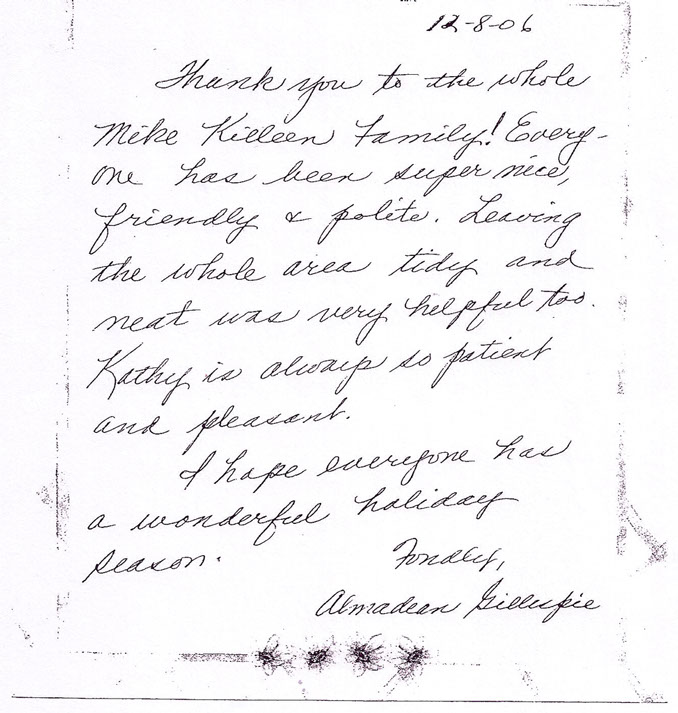 12-8-06
Thank you to the whole
Mike Killeen Family! Every-
one has been super nice,
friendly & polite. Leaving
the whole area tidy and
neat was very helpful too.
Kathy is always so patient
and pleasant.
I hope everyone has
a wonderful holiday
season.
Fondly,
Almadean Gillespie